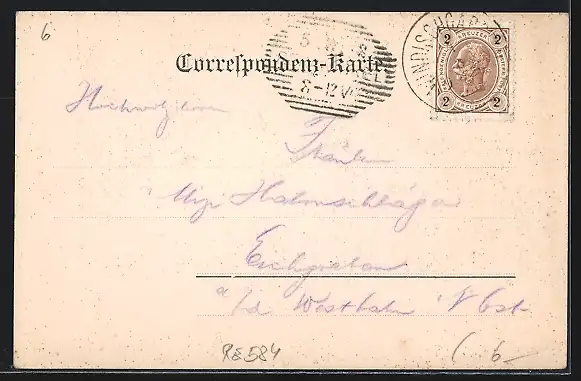 6
Correspondenz-Karte
8-12V
WINDISCHGAR
2 KREUZER 2
2 2
Hochwohlgeboren
Fräulein
Mizi Halmschläger
Eichgraben
a/d Westbahn N Öst.
RE 584
6